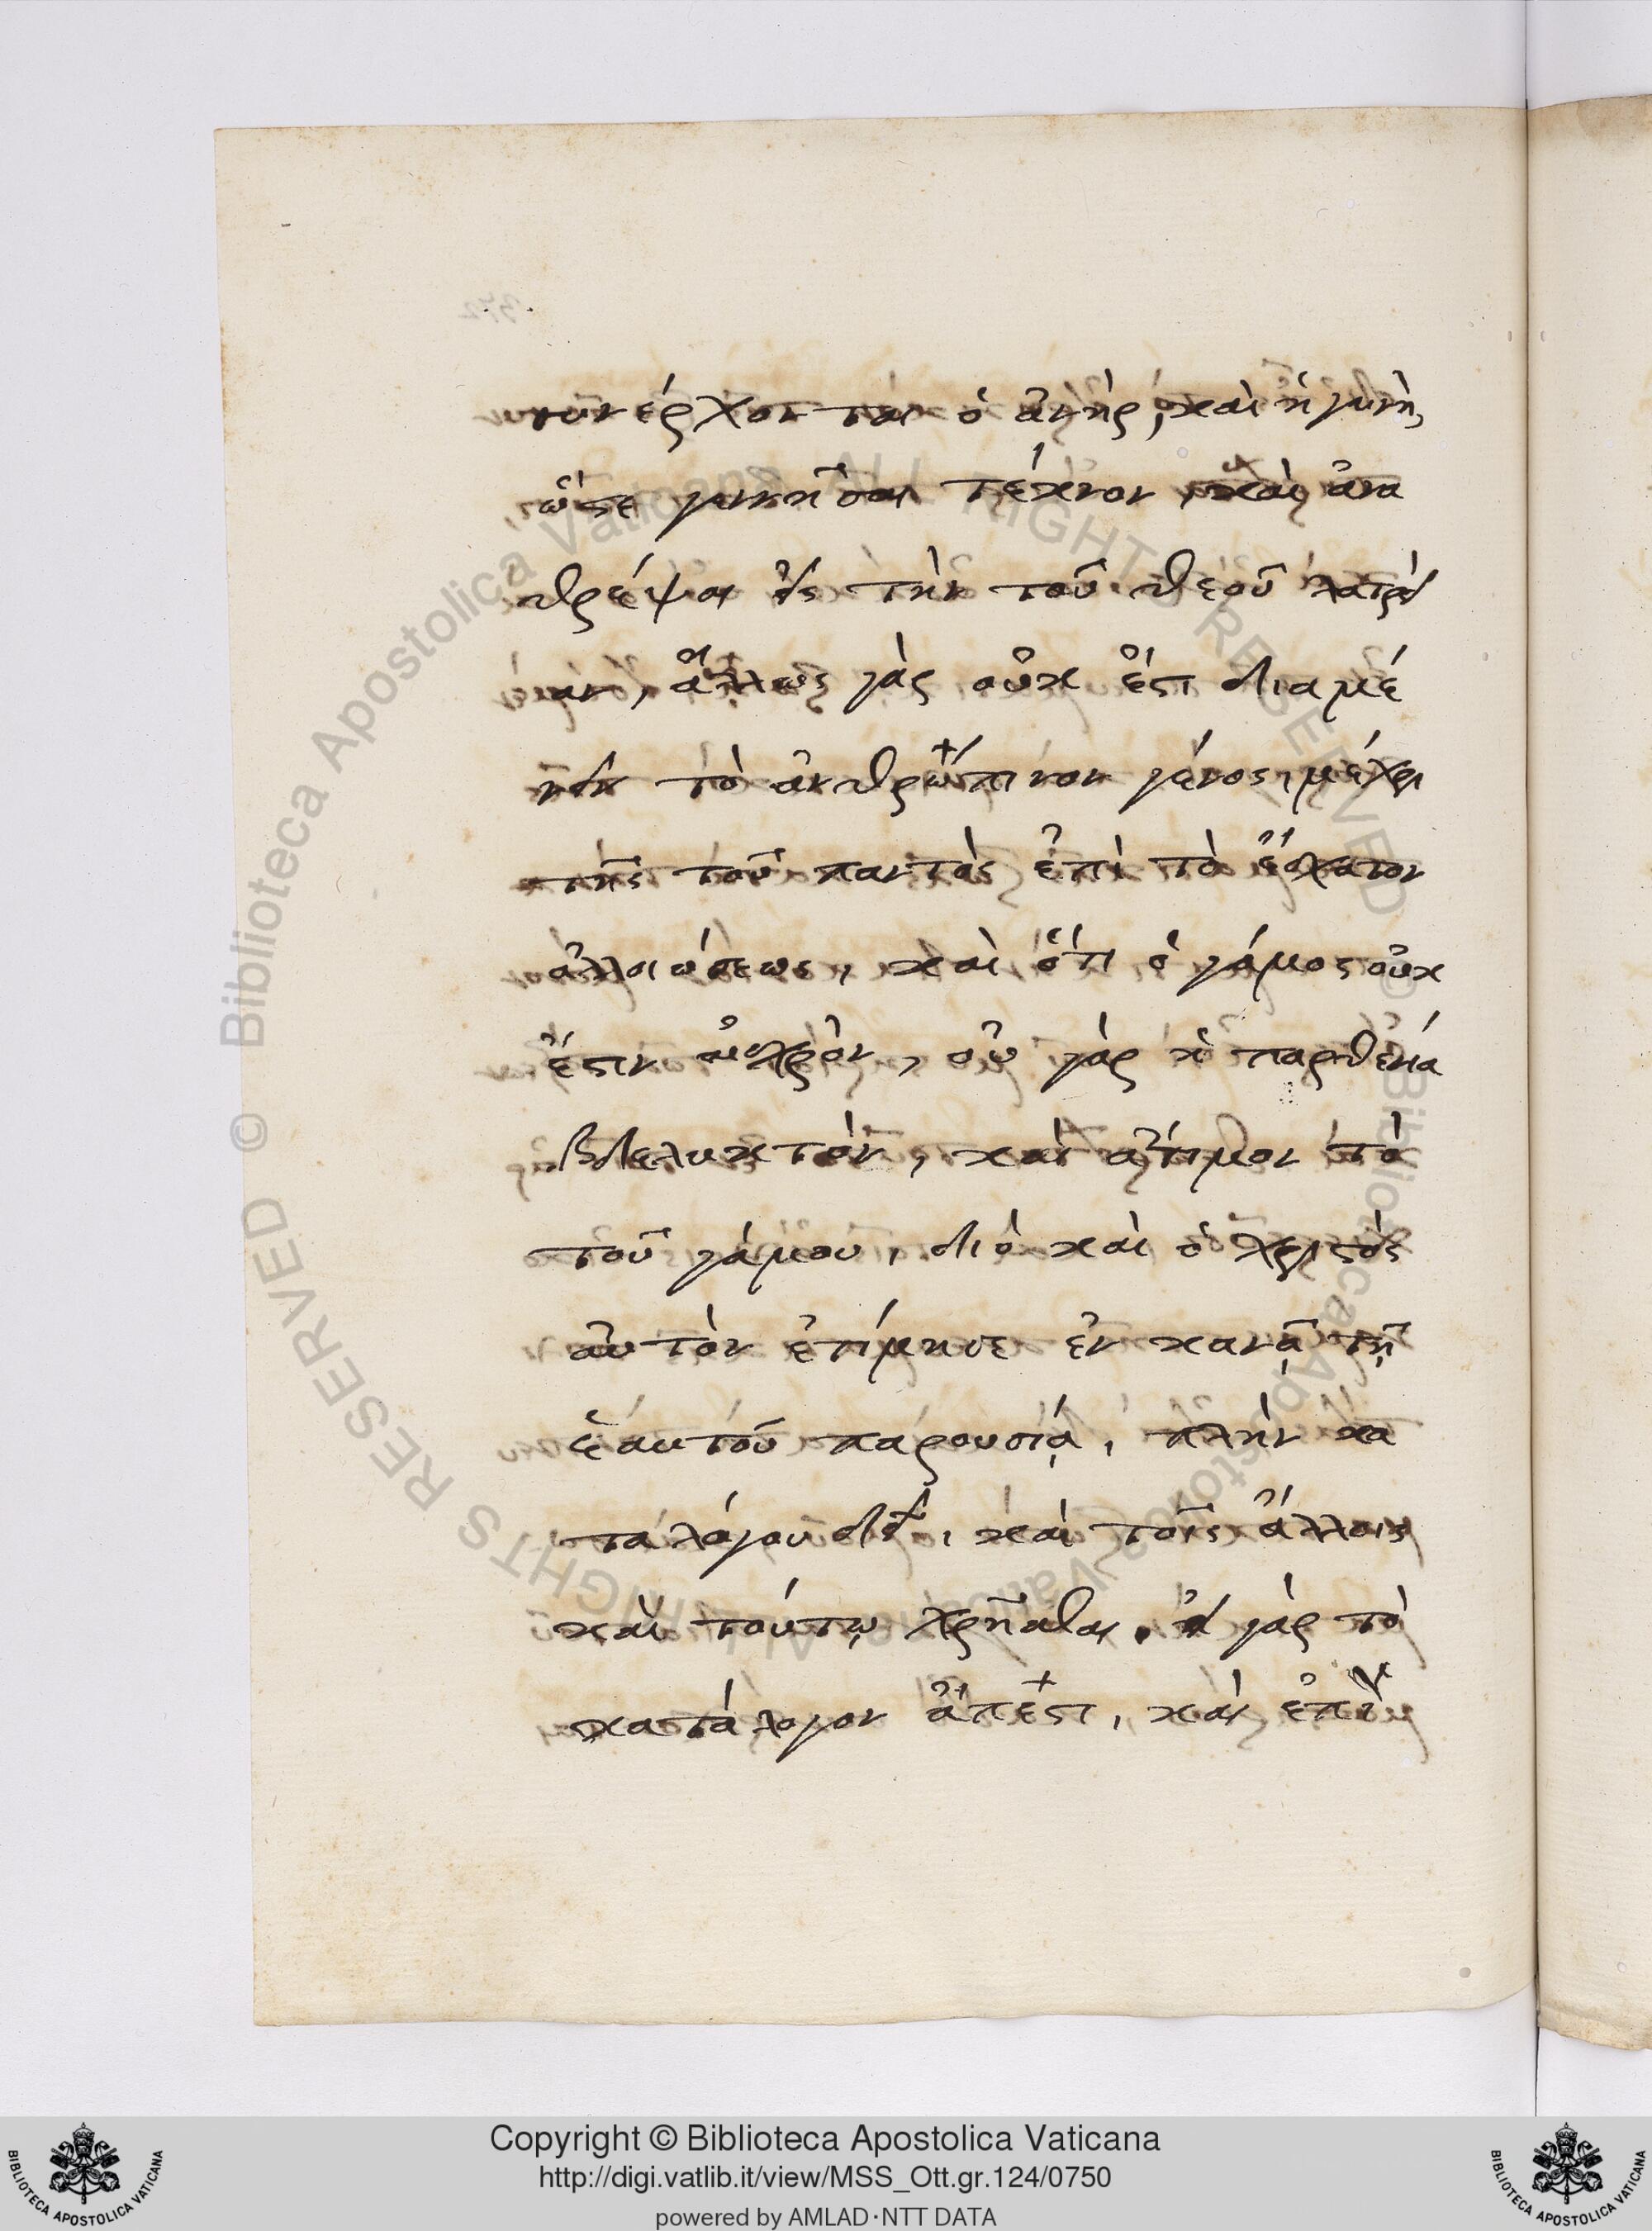 συνέρχονται ὁ ἀνὴρ, καὶ ἡ γυνὴ,
ὥστε γεννῆσαι τέκνον, καὶ ἀνα
θρέψαι εἰς τὴν τοῦ θεοῦ λατρεί
αν, ἄλλως γὰρ οὐκ ἔστι διαμέ
νειν τὸ ἀνθρώπινον γένος, μέχρι
τῆς τοῦ παντὸς ἐπὶ τὸ ἔσχατον
ἀλλοιώσεως, καὶ ὅτι ὁ γάμος οὐκ
ἔστιν αἰσχρὸν, οὐ γὰρ ἡ παρθενία
βδελυκτὸν, καὶ ἄτιμον τὸ
τοῦ γάμου, διὸ καὶ ὁ χριστὸς
αὐτὸν ἐτίμησε ἐν κανᾷ τῇ
ἑαυτοῦ παρουσίᾳ, πλὴν κα
τὰ λόγου δεῖ, καὶ τοῖς ἄλλοις
καὶ τούτῳ χρῆσθαι. εἰ γὰρ τὸ
κατάλογον ἄπεστι, καὶ ἐπὶ
Copyright © Biblioteca Apostolica Vaticana
http://digi.vatlib.it/view/MSS_Ott.gr.124/0750
powered by AMLAD·NTT DATA
BIBLIOTECA APOSTOLICA VATICANA
BIBLIOTECA APOSTOLICA VATICANA